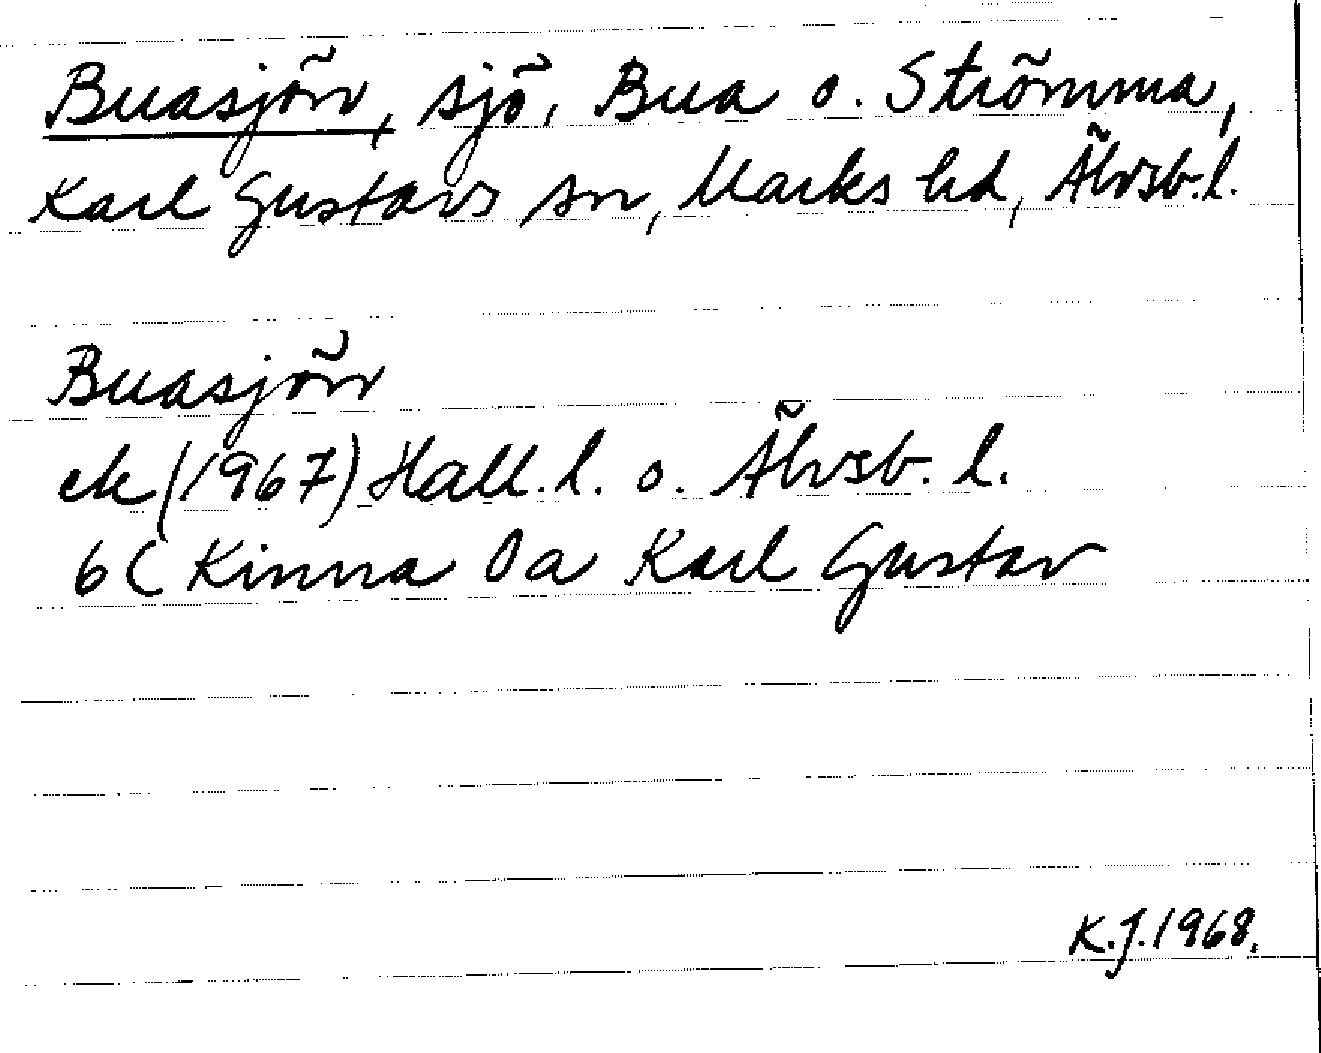 Buasjön, sjö, Bua o. Strömma,
Karl Gustavs sn, Marks hd, Älvsb.l.
Buasjön
ek (1967) Hall.l. o. Älvsb. l.
6C Kinna 0a Karl Gustav
K.J. 1968.